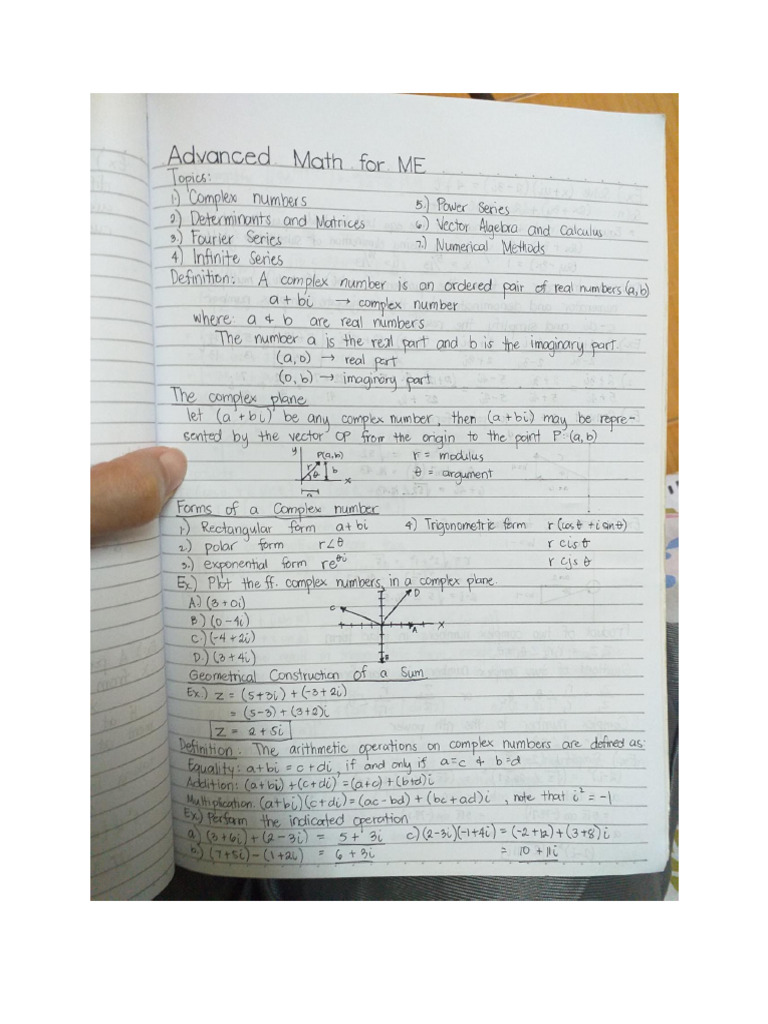 Advanced Math for ME
Topics:
1.) Complex numbers 5.) Power Series
2) Determinants and Matrices 6.) Vector Algebra and Calculus
3.) Fourier Series 7.) Numerical Methods
4) Infinite Series
Definition: A complex number is an ordered pair of real numbers (a,b)
a + bi → complex number
where: a & b are real numbers
The number a is the real part and b is the imaginary part.
(a,0) → real part
(0,b) → imaginary part
The complex plane
let (a + bi) be any complex number, then (a + bi) may be repre-
sented by the vector OP from the origin to the point P: (a,b)
y P(a,b) r = modulus
r θ b x θ = argument
a
Forms of a Complex number
1.) Rectangular form a + bi 4.) Trigonometric form r (cosθ + i sinθ)
2.) polar form r∠θ r cis θ
3.) exponential form re^θi r cjs θ
Ex.) Plot the ff. complex numbers in a complex plane.
A.) (3 + 0i) D
B.) (0 - 4i) C
C.) (-4 + 2i) A x
D.) (3 + 4i) B
Geometrical Construction of a Sum
Ex.) z = (5+3i) + (-3+2i)
= (5-3) + (3+2)i
z = 2 + 5i
Definition: The arithmetic operations on complex numbers are defined as:
Equality: a+bi = c+di, if and only if a=c & b=d
Addition: (a+bi) + (c+di) = (a+c) + (b+d)i
Multiplication: (a+bi)(c+di) = (ac-bd) + (bc+ad)i, note that i² = -1
Ex.) Perform the indicated operation
a.) (3+6i) + (2-3i) = 5 + 3i c.) (2-3i)(-1+4i) = (-2+12) + (3+8)i
b.) (7+5i) - (1+2i) = 6 + 3i = 10 + 11i